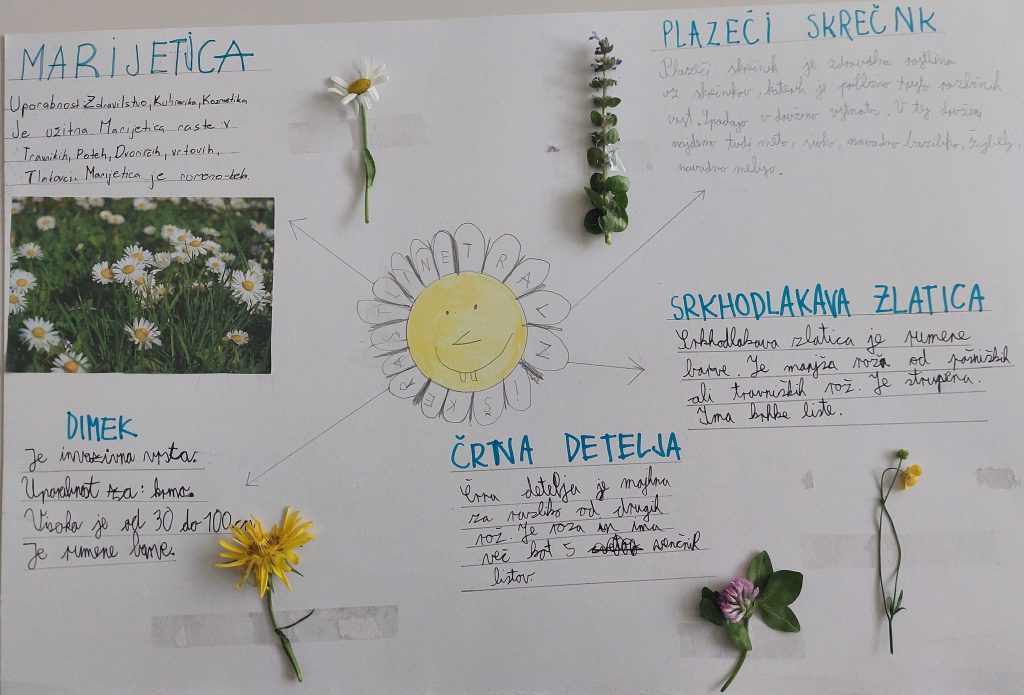 MARIJETICA
Uporabnost: Zdravilstvo, Kulinarika, Kozmetika
Je užitna Marijetica raste v
Travnikih, Poteh, Dvoriščih, vrtovih,
Tlakovcih Marijetica je rumeno-bela.
PLAZEČI SKREČNK
Plazeči skrečnik je zdravilna rastlina
iz skrčnikov, katerih je približno različnih
vrst. Spadajo v družino ustnatic. V tej družini
najdemo tudi meto, sivko, navadno baziliko, žajbelj,
navadno meliso.
TRAVNIŠKE RASTLINE
SRKHODLAKAVA ZLATICA
Srkhodlakava zlatica je rumene
barve. Je manjša roža od pašniških
ali travniških rož. Je strupena.
Ima krhke liste.
DIMEK
Je invazivna vrsta.
Uporabnost za: krmo.
Visoka je od 30 do 100 cm
Je rumene barve.
ČRTNA DETELJA
Črna detelja je majhna
za razliko od drugih
rož. Je roza in ima
več kot 5 venčnih
listov.